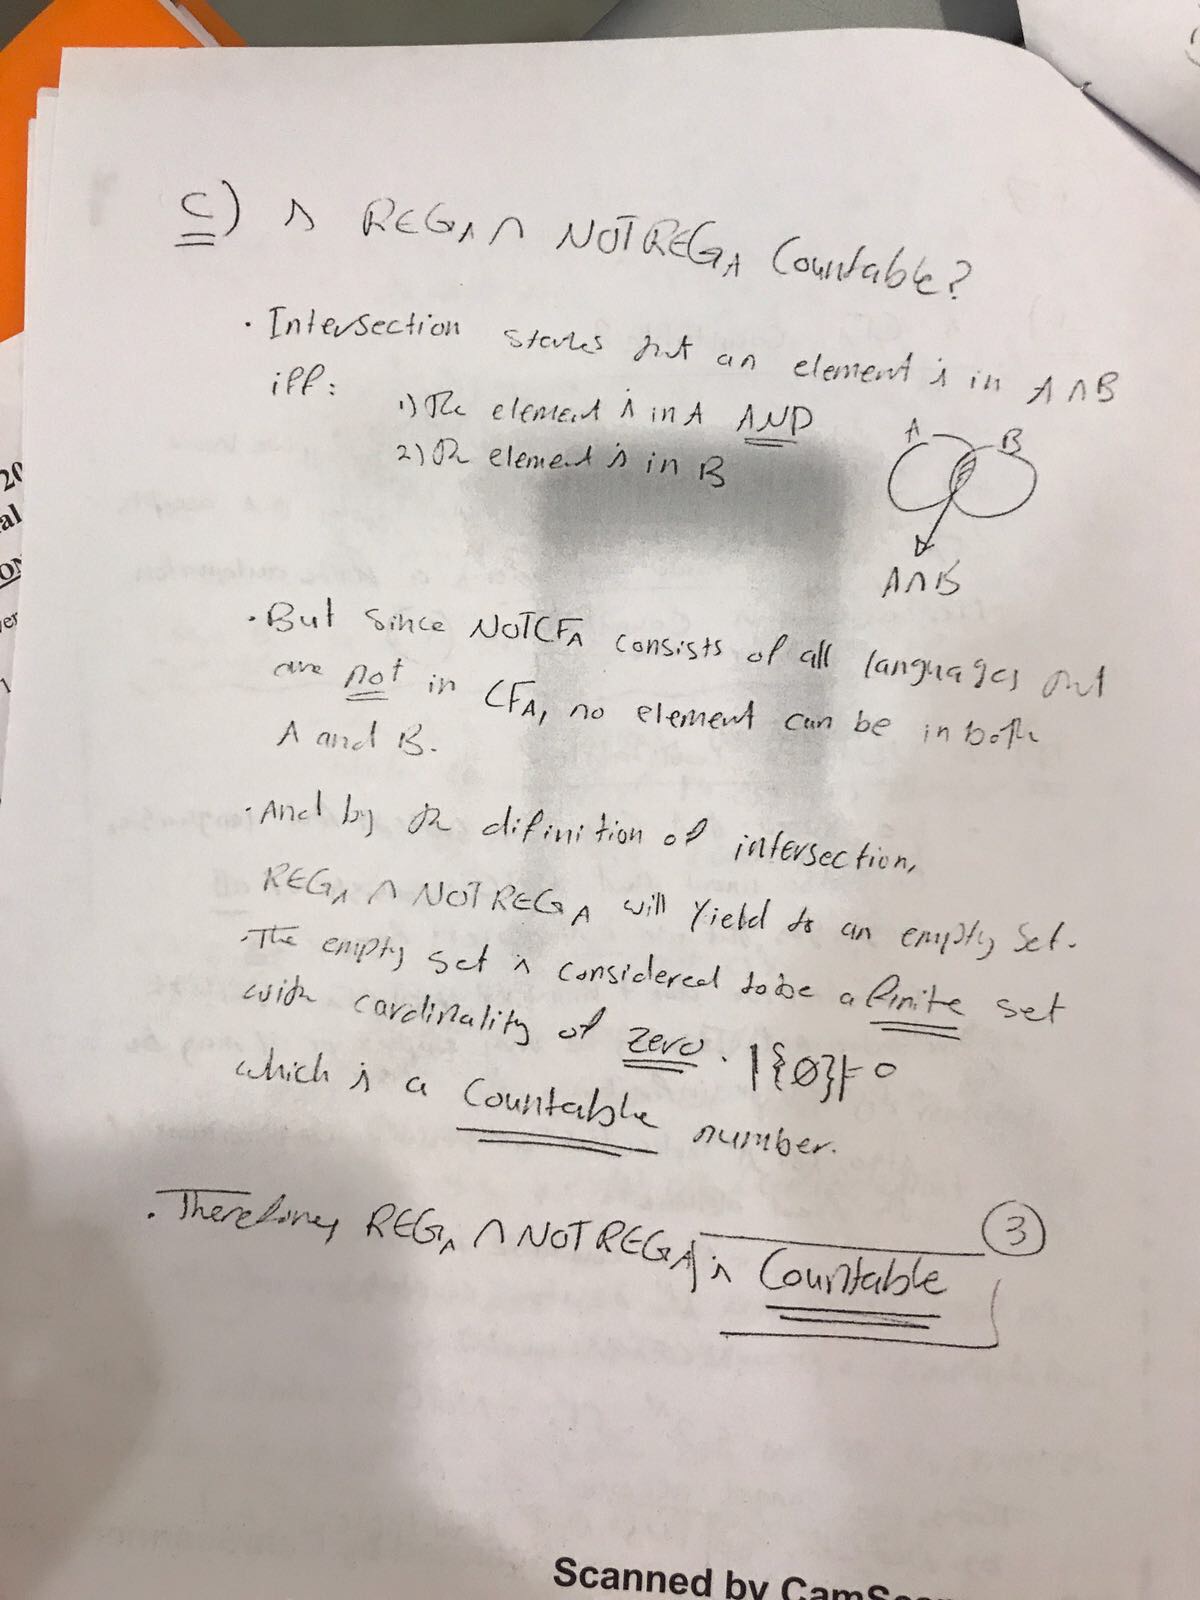 c) is REG_A ∩ NOTREG_A Countable?
· Intersection states that an element is in A ∩ B
iff:
1) The element is in A AND
2) The element is in B
A B
A∩B
· But since NOTCF_A consists of all languages that
are not in CF_A, no element can be in both
A and B.
· And by the difinition of intersection,
REG_A ∩ NOTREG_A will Yield to an empty set.
· The empty set is considered to be a finite set
with cardinality of zero. |{∅}| = 0
which is a Countable number.
· Therefore, REG_A ∩ NOTREG_A is Countable
3
20
al
ON
ver
Scanned by CamScan